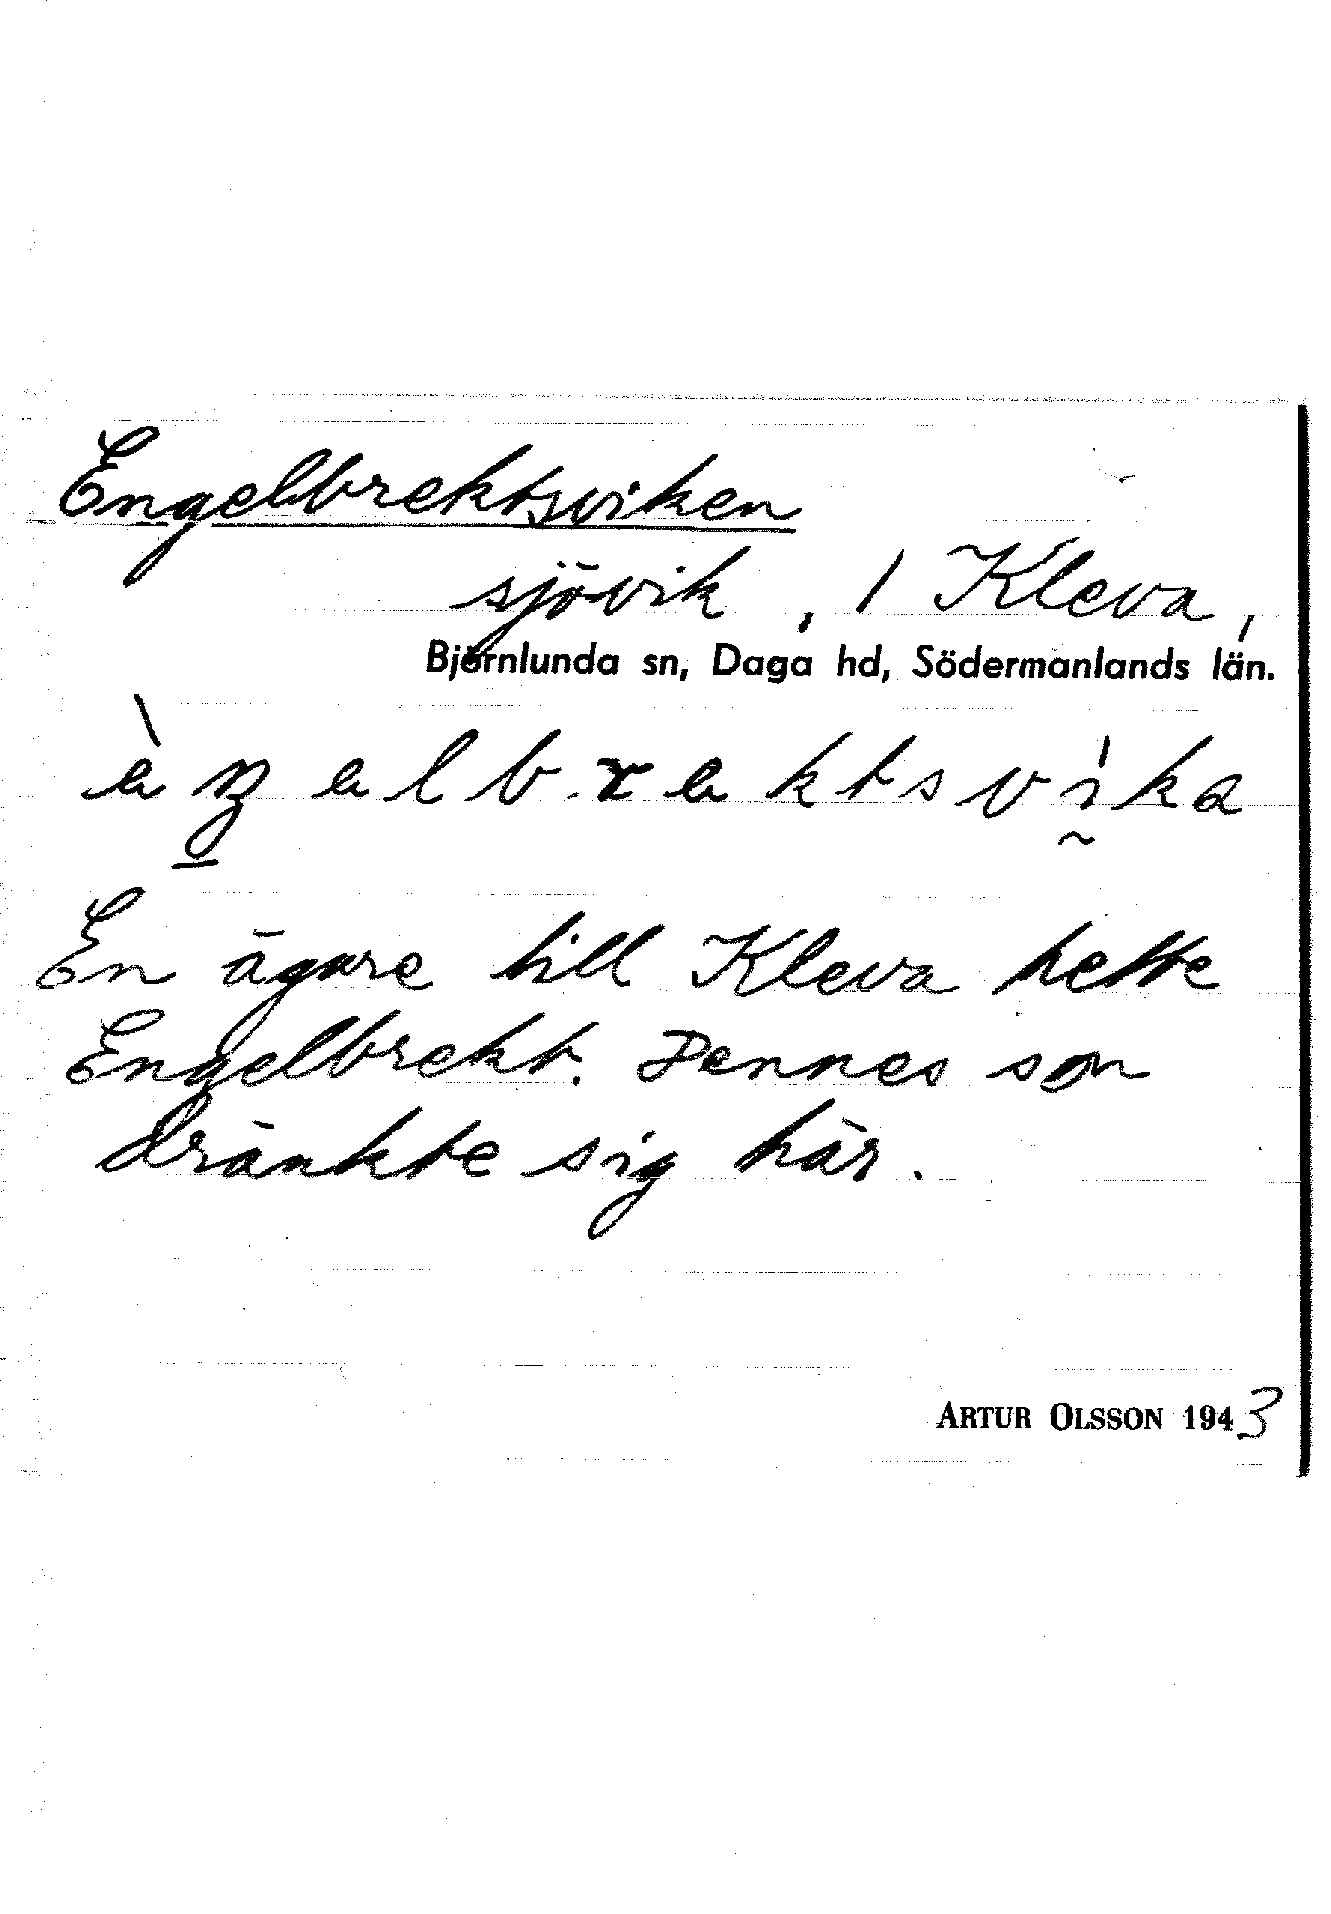 Engelbrektsviken
sjövik , / Kleva,
Björnlunda sn, Daga hd, Södermanlands län.
En ägare till Kleva hette
Engelbrekt. Dennes son
dränkte sig här.
ARTUR OLSSON 1943